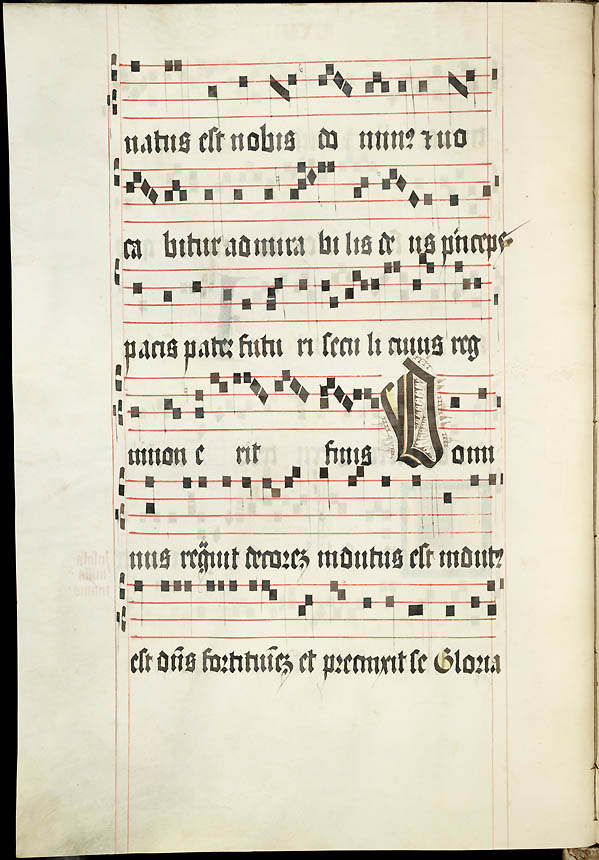 natus est nobis do minꝰ ⁊ uo
ca bitur admira bi lis de us p̃nceps
pacis pater futu ri secu li cuius reg
ni non e rit finis Domi
nus reg̃uit decorez indutus est indutꝰ
est dñs fortitud̃ez et precinxit se Gloria